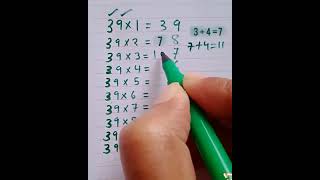 39×1 = 39
39×2 = 78
39×3 = 1 7
39×4 =
39×5 =
39×6 =
39×7 =
39×8 =
39
39
3+4=7
7+4=11